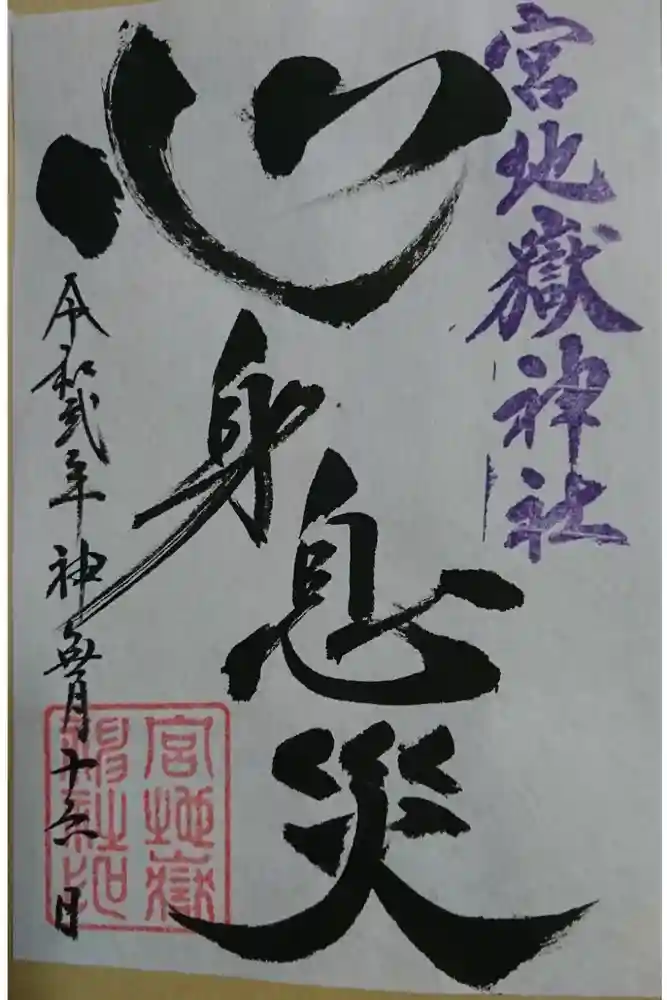 宮地嶽神社
心身息災
令和弐年神無月十六日
宮地嶽